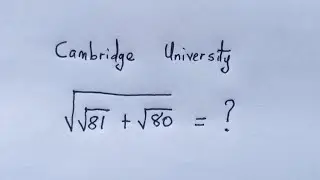 Cambridge University
√(√81 + √80) = ?